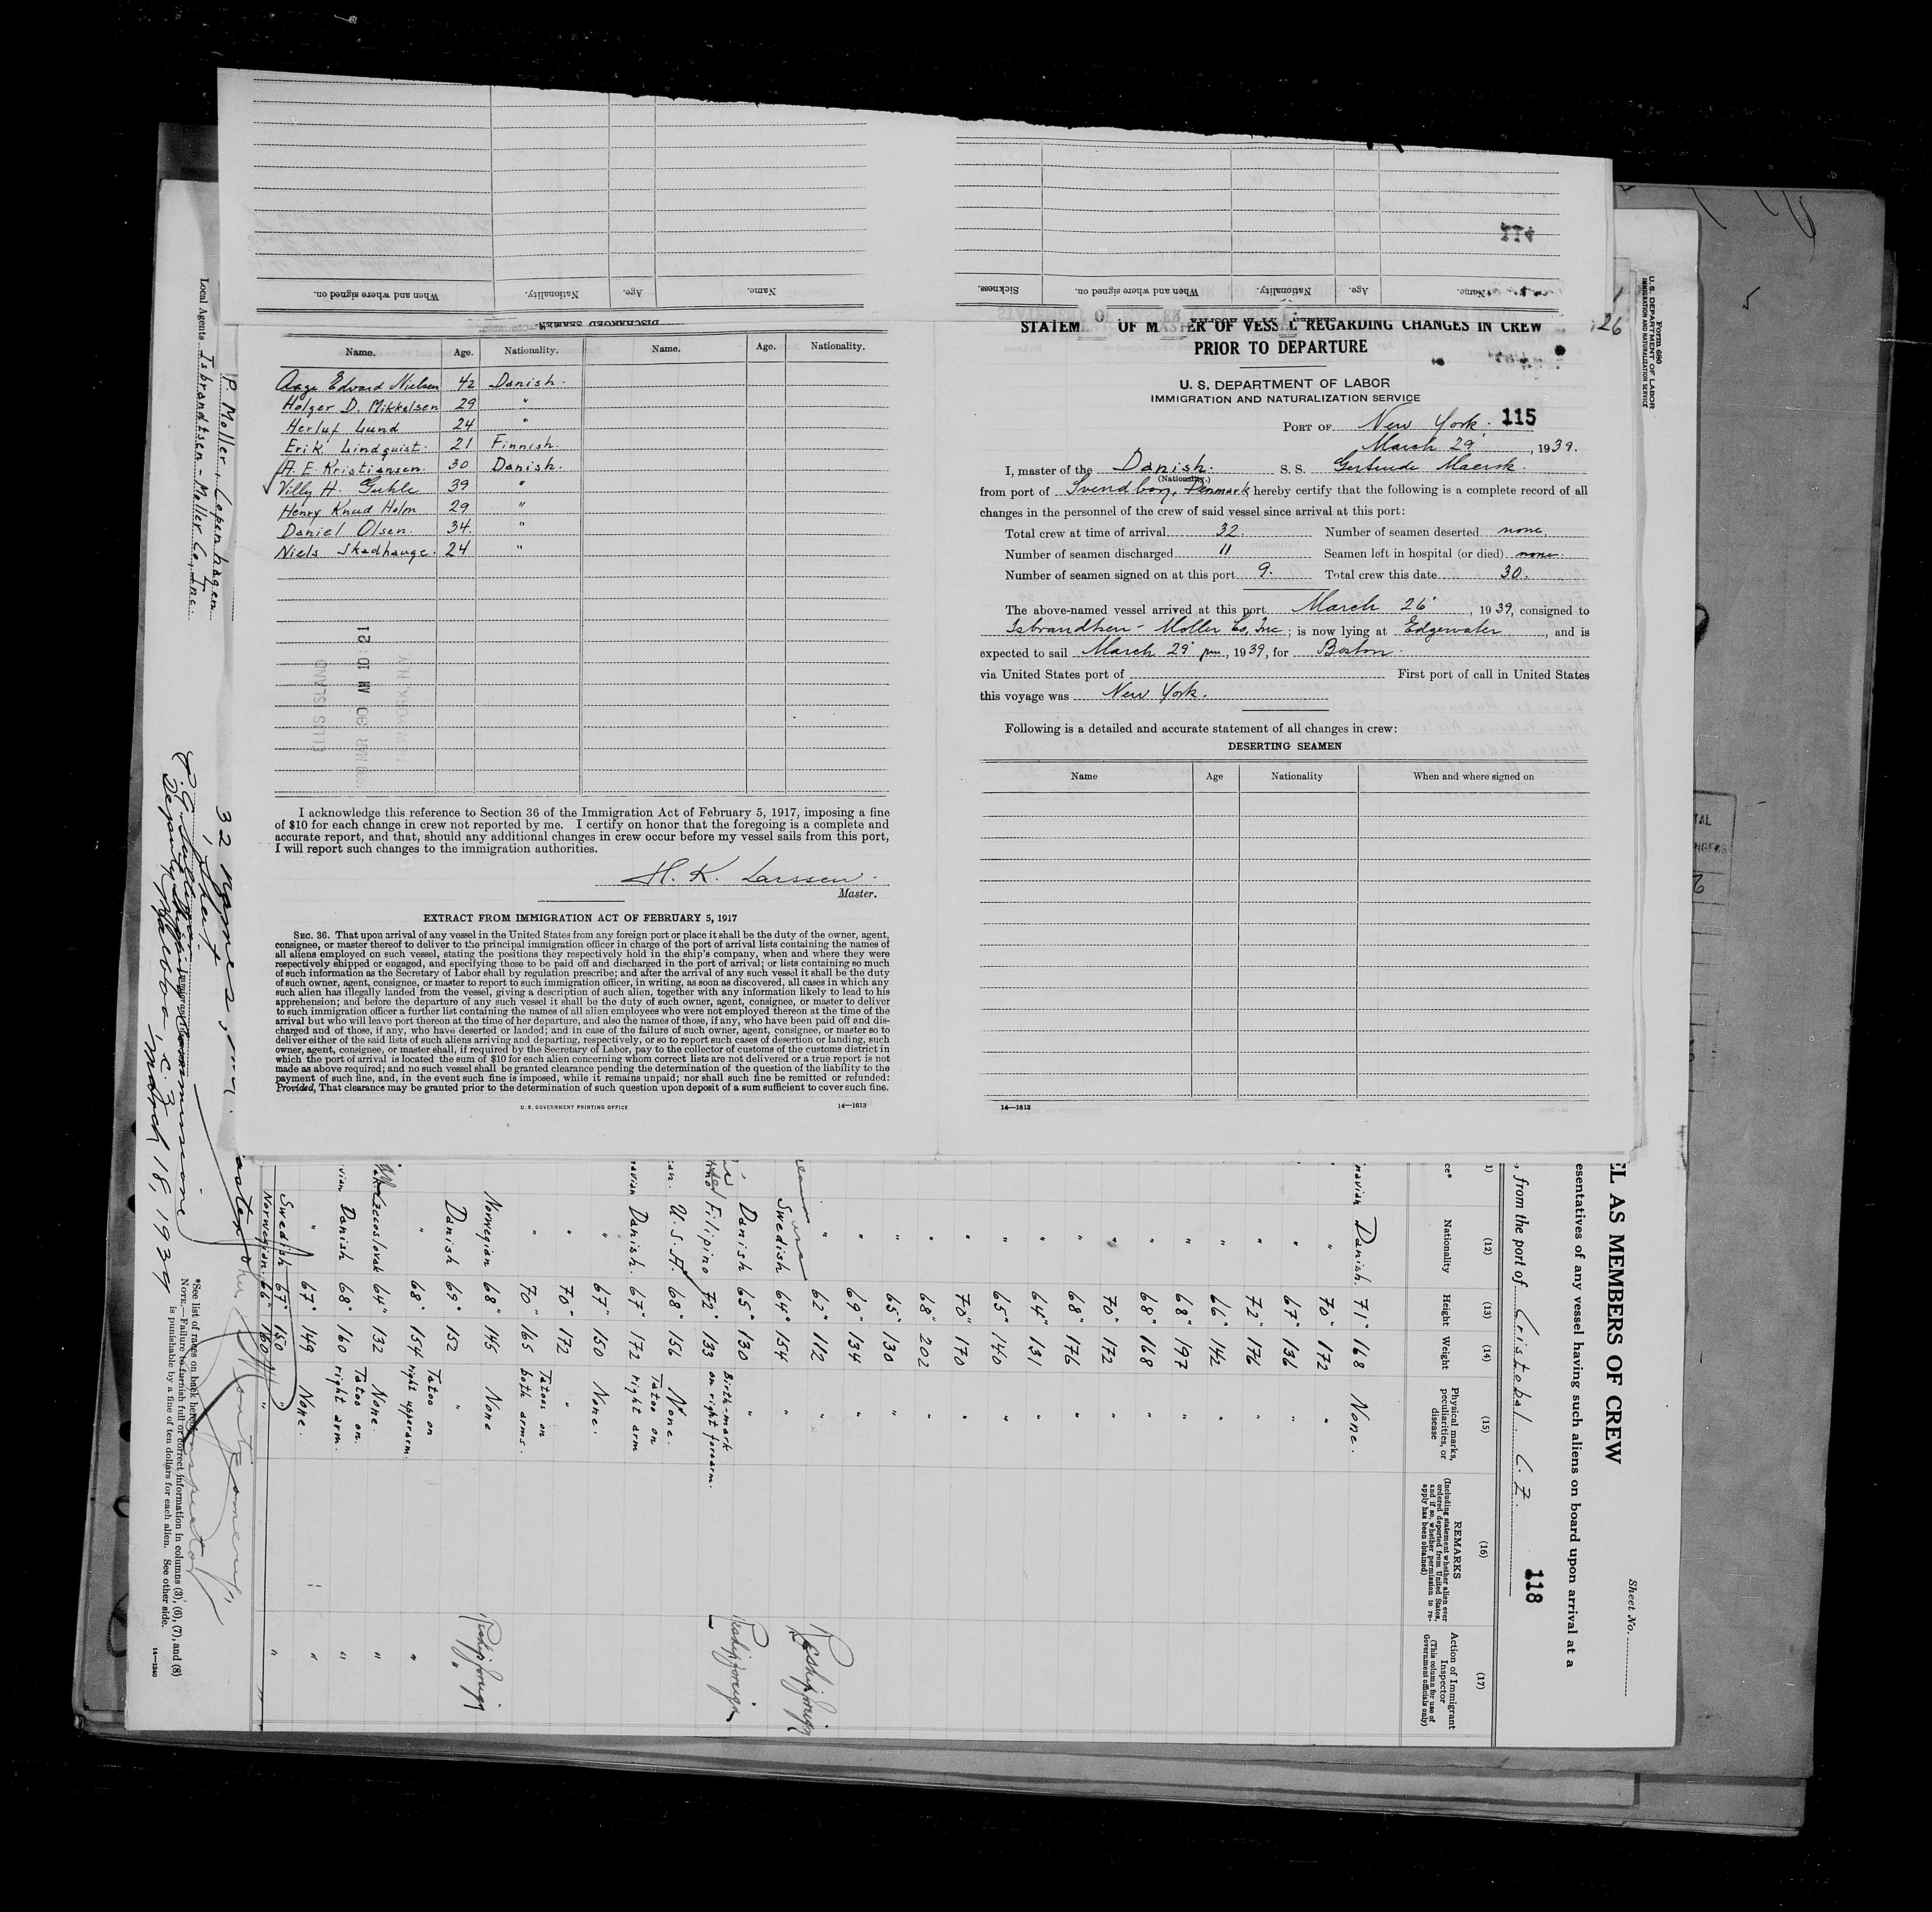 When and where signed on.
Nationality.
Age.
Name.
Sickness.
When and where signed on.
Nationality.
Age.
Name.
114
DISCHARGED SEAMEN
Name. Age. Nationality. Name. Age. Nationality.
Aage Edvard Nielsen 42 Danish.
Holger D. Mikkelsen 29 "
Herluf Lund 24 "
Erik Lindquist. 21 Finnish.
A. E. Kristiansen. 30 Danish.
Villy H. Guhle 39 "
Henry Knud Holm 29 "
Daniel Olsen. 34. "
Niels Skadhauge. 24 "
ELLIS ISLAND
NEW YORK, N.Y.
I acknowledge this reference to Section 36 of the Immigration Act of February 5, 1917, imposing a fine
of $10 for each change in crew not reported by me. I certify on honor that the foregoing is a complete and
accurate report, and that, should any additional changes in crew occur before my vessel sails from this port,
I will report such changes to the immigration authorities.
H. K. Larssen.
Master.
EXTRACT FROM IMMIGRATION ACT OF FEBRUARY 5, 1917
SEC. 36. That upon arrival of any vessel in the United States from any foreign port or place it shall be the duty of the owner, agent,
consignee, or master thereof to deliver to the principal immigration officer in charge of the port of arrival lists containing the names of
all aliens employed on such vessel, stating the positions they respectively hold in the ship's company, when and where they were
respectively shipped or engaged, and specifying those to be paid off and discharged in the port of arrival; or lists containing so much
of such information as the Secretary of Labor shall by regulation prescribe; and after the arrival of any such vessel it shall be the duty
of such owner, agent, consignee, or master to report to such immigration officer, in writing, as soon as discovered, all cases in which any
such alien has illegally landed from the vessel, giving a description of such alien, together with any information likely to lead to his
apprehension; and before the departure of any such vessel it shall be the duty of such owner, agent, consignee, or master to deliver
to such immigration officer a further list containing the names of all alien employees who were not employed thereon at the time of the
arrival but who will leave port thereon at the time of her departure, and also the names of those, if any, who have been paid off and dis-
charged and of those, if any, who have deserted or landed; and in case of the failure of such owner, agent, consignee, or master so to
deliver either of the said lists of such aliens arriving and departing, respectively, or so to report such cases of desertion or landing, such
owner, agent, consignee, or master shall, if required by the Secretary of Labor, pay to the collector of customs of the customs district in
which the port of arrival is located the sum of $10 for each alien concerning whom correct lists are not delivered or a true report is not
made as above required; and no such vessel shall be granted clearance pending the determination of the question of the liability to the
payment of such fine, and, in the event such fine is imposed, while it remains unpaid; nor shall such fine be remitted or refunded:
Provided, That clearance may be granted prior to the determination of such question upon deposit of a sum sufficient to cover such fine.
U. S. GOVERNMENT PRINTING OFFICE 14—1613
OF MASTER OF VESSEL REGARDING CHANGES IN CREW
PRIOR TO DEPARTURE
U. S. DEPARTMENT OF LABOR
IMMIGRATION AND NATURALIZATION SERVICE
PORT OF New York. 115
March 29', 1939.
I, master of the Danish. S. S. Gertrude Maersk.
(Nationality.)
from port of Svendborg, Denmark hereby certify that the following is a complete record of all
changes in the personnel of the crew of said vessel since arrival at this port:
Total crew at time of arrival 32. Number of seamen deserted none.
Number of seamen discharged 11 Seamen left in hospital (or died) none.
Number of seamen signed on at this port 9. Total crew this date 30.
The above-named vessel arrived at this port March 26', 1939, consigned to
Isbrandtsen - Moller Co, Inc; is now lying at Edgewater, and is
expected to sail March 29' pm, 1939, for Boston.
via United States port of First port of call in United States
this voyage was New York.
Following is a detailed and accurate statement of all changes in crew:
DESERTING SEAMEN
Name Age Nationality When and where signed on
14—1613
26
Form 680
U. S. DEPARTMENT OF LABOR
IMMIGRATION AND NATURALIZATION SERVICE
Sheet No.
AS MEMBERS OF CREW
esentatives of any vessel having such aliens on board upon arrival at a
, from the port of Cristobal. C. Z.
118
(12) (13) (14) (15) (16) (17)
Nationality
Height
Weight
Physical marks, peculiarities, or disease
REMARKS
(Including statement whether alien ever ordered deported from United States, and if so, whether permission to re-apply has been obtained)
Action of Immigrant Inspector
(This column for use of Government officials only)
navian Danish. 71" 168 None.
" 70" 172 "
" 67" 136 "
" 72" 176 "
" 66" 142 "
" 68" 197 "
" 68" 168 "
" 70" 172 "
" 68" 176 "
" 64" 131 "
" 65" 140 "
" 70" 170 "
" 68" 202 "
" 65" 130 "
" 69" 134 "
" 62" 112 "
Swedish 64" 154 " Reship foreign
Danish 65" 130 "
Filipino 72" 133 Birth-mark on right forearm. Reship foreign
U.S.A. 68" 156 None.
navian Danish. 67" 172 Tatoo on right arm
" 67" 150 None.
" 70" 172 "
" 70" 165 Tatoo on both arms.
Norwegian 68" 145 None Reship foreign
Danish 69" 152 " "
" 68" 154 Tatoo on right upperarm. "
Czecoslovak 64" 132 None. "
vian Danish 68" 160 Tatoo on right arm. "
" 67" 149 None. "
Swedish 67" 150 "
Norwegian. 66" 160 " "
*See list of races on back hereof.
NOTE.—Failure to furnish full or correct information in columns (3), (6), (7), and (8)
is punishable by a fine of ten dollars for each alien. See other side.
14—1240
P. Moller, Copenhagen
Local Agents Isbrandtsen - Moller Co., Inc.
32 names
Balboa, C. Z.
March 18, 1939